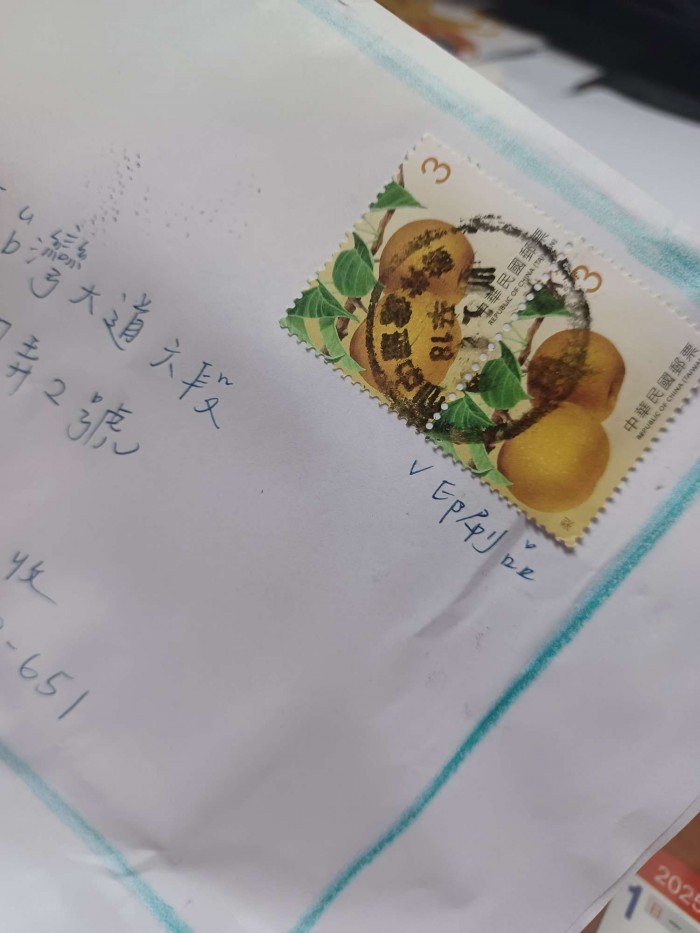 灣大道六段
弄2號
收
-651
3
中華民國郵票
REPUBLIC OF CHINA
3
中華民國郵票
REPUBLIC OF CHINA (TAIWAN)
18
✓印刷品
2025
1
日 一